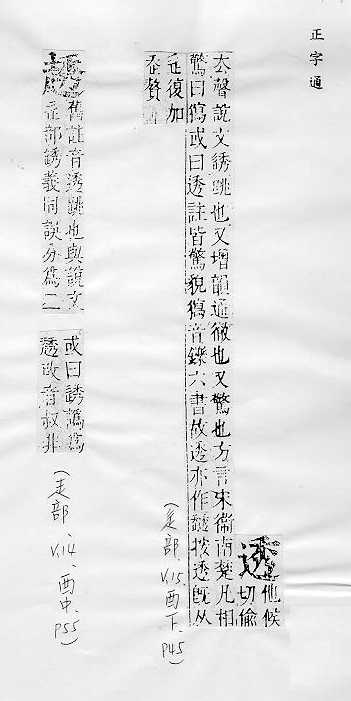 正字通
透
他候
切偷
去聲說文透跳也又增韻通徹也又驚也方言宋衞南楚凡相
驚曰㺀或曰透註皆驚貌㺀音鑠六書故透亦作按透既从
辵復加
走贅
(辵部、V.15、酉下、P45)
舊註音透跳也與說文
辵部透義同誤分爲二
或曰誘譌爲
透改音叔非
(走部、V.14、酉中、P55)